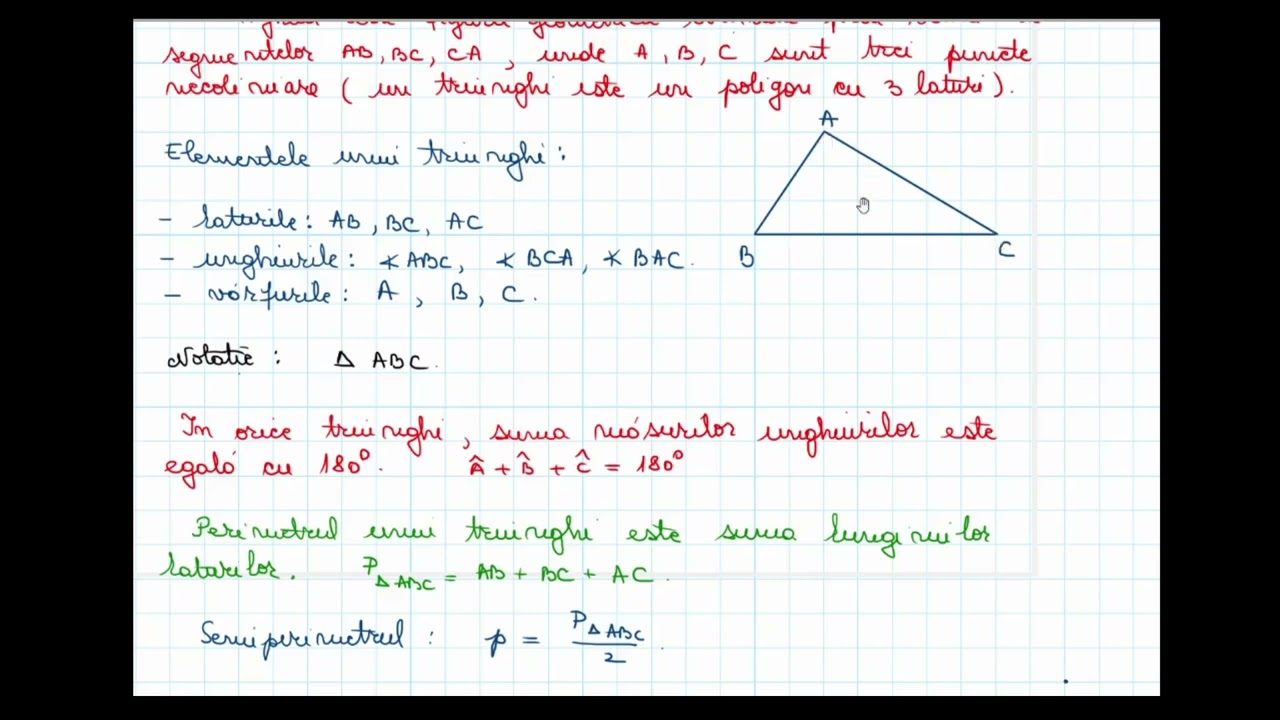 segmentelor AB, BC, CA, unde A, B, C sunt trei puncte
necoliniare (un triunghi este un poligon cu 3 laturi).
A
Elementele unui triunghi:
- laturile: AB, BC, AC
- unghiurile: ∢ABC, ∢BCA, ∢BAC.
B
C
- vârfurile: A, B, C.
Notatie: Δ ABC.
In orice triunghi, suma măsurilor unghiurilor este
egală cu 180°. Â + B̂ + Ĉ = 180°
Perimetrul unui triunghi este suma lungimilor
laturilor. P Δ ABC = AB + BC + AC.
Semiperimetrul: p = P Δ ABC / 2.